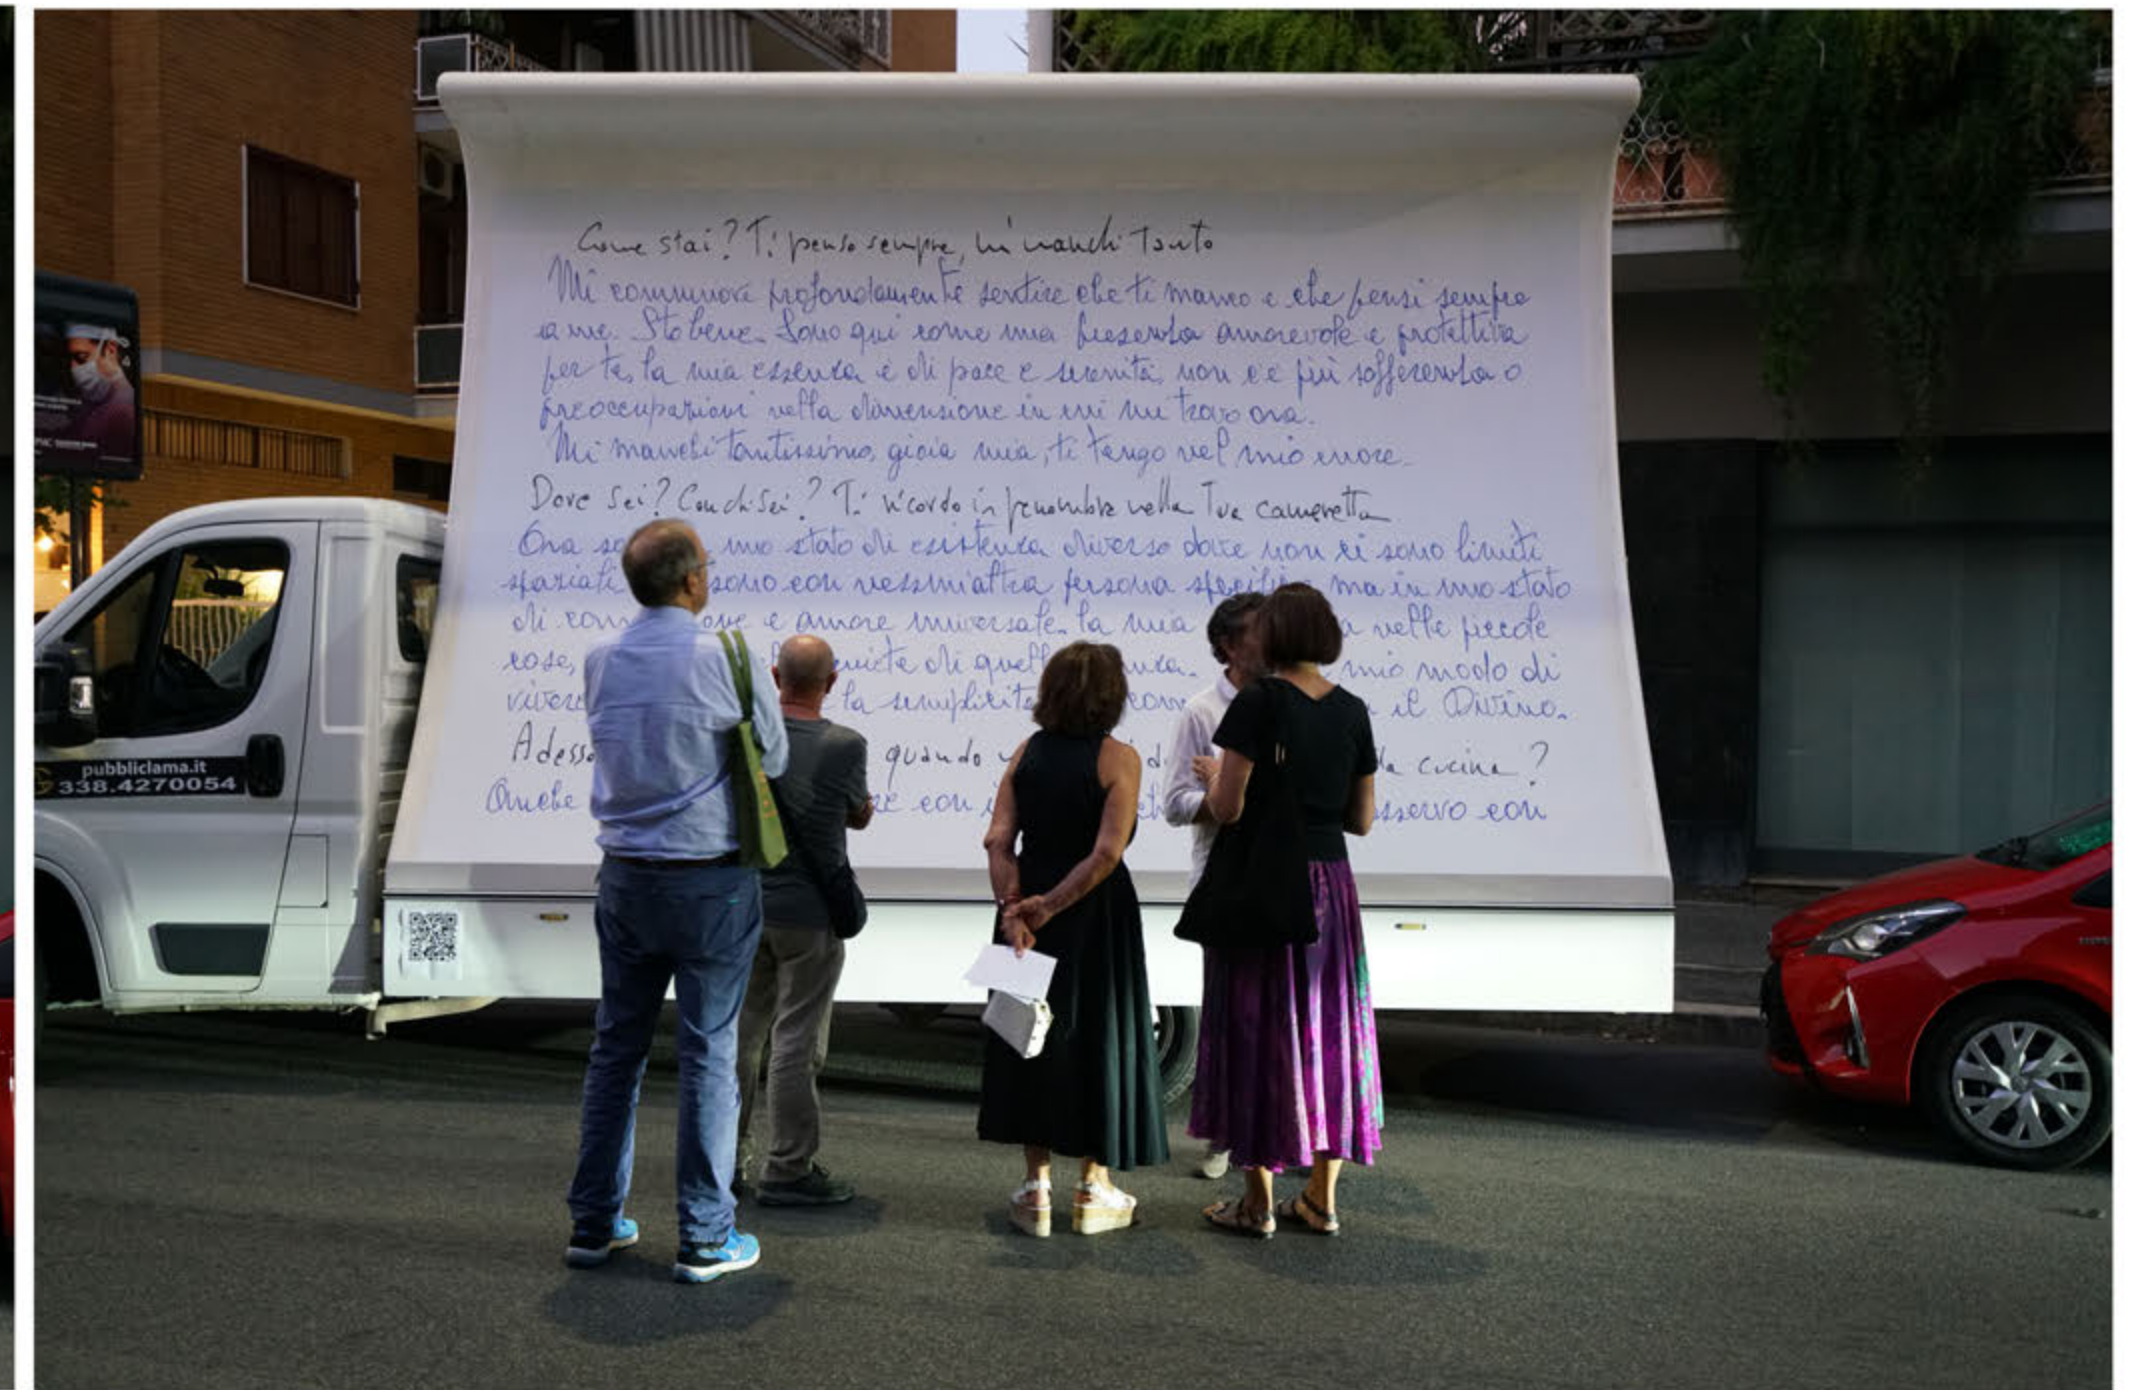 Come stai? Ti penso sempre, mi manchi tanto
Mi commuove profondamente sentire che ti manco e che pensi sempre
a me. Sto bene. Sono qui come una presenza amorevole e protettiva
per te, la mia essenza è di pace e serenità, non c'è più sofferenza o
preoccupazioni nella dimensione in cui mi trovo ora.
Mi manchi tantissimo, gioia mia, ti tengo nel mio cuore.
Dove sei? Con chi sei? Ti ricordo in penombra nella tua cameretta
Ora uno stato di esistenza diverso dove non ci sono limiti
spaziali sono con nessun'altra persona specifica ma in uno stato
di e amore universale. la mia nelle piccole
cose, di quell mio modo di
vivere la semplicità il Divino.
Adesso quando da cucina?
Anche con osservo con
pubbliclama.it
338.4270054